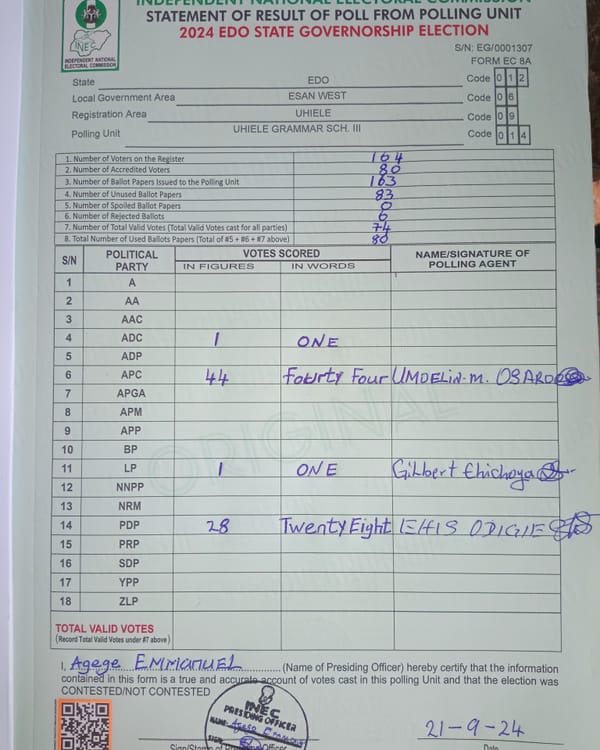 INDEPENDENT NATIONAL ELECTORAL COMMISSION
STATEMENT OF RESULT OF POLL FROM POLLING UNIT
2024 EDO STATE GOVERNORSHIP ELECTION
INEC
INDEPENDENT NATIONAL
ELECTORAL COMMISSION
S/N: EG/0001307
FORM EC 8A
State EDO Code 0 1 2
Local Government Area ESAN WEST Code 0 6
Registration Area UHIELE Code 0 9
Polling Unit UHIELE GRAMMAR SCH. III Code 0 1 4
1. Number of Voters on the Register 164
2. Number of Accredited Voters 80
3. Number of Ballot Papers Issued to the Polling Unit 163
4. Number of Unused Ballot Papers 83
5. Number of Spoiled Ballot Papers 0
6. Number of Rejected Ballots 6
7. Number of Total Valid Votes (Total Valid Votes cast for all parties) 74
8. Total Number of Used Ballots Papers (Total of #5 + #6 + #7 above) 80
S/N POLITICAL PARTY VOTES SCORED NAME/SIGNATURE OF POLLING AGENT
IN FIGURES IN WORDS
1 A
2 AA
3 AAC
4 ADC 1 ONE
5 ADP
6 APC 44 Fourty Four
7 APGA
8 APM
9 APP
10 BP
11 LP 1 ONE Gilbert Ehichoya
12 NNPP
13 NRM
14 PDP 28 Twenty Eight EHIS ODIGIE
15 PRP
16 SDP
17 YPP
18 ZLP
ORIGINAL
TOTAL VALID VOTES
(Record Total Valid Votes under #7 above)
I, Agege EMMANUEL (Name of Presiding Officer) hereby certify that the information
contained in this form is a true and accurate account of votes cast in this polling Unit and that the election was
CONTESTED/NOT CONTESTED
INEC
PRESIDING OFFICER
NAME: Agege Emmanuel
SIGN:
21-9-24
Sign/Stamp of Presiding Officer Date